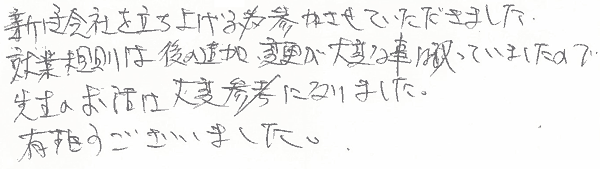 新しく会社を立ち上げる為参加させていただきました。
就業規則は後の追加、変更が大変な事は知っていましたので
先生のお話は大変参考になりました。
有難うございました。